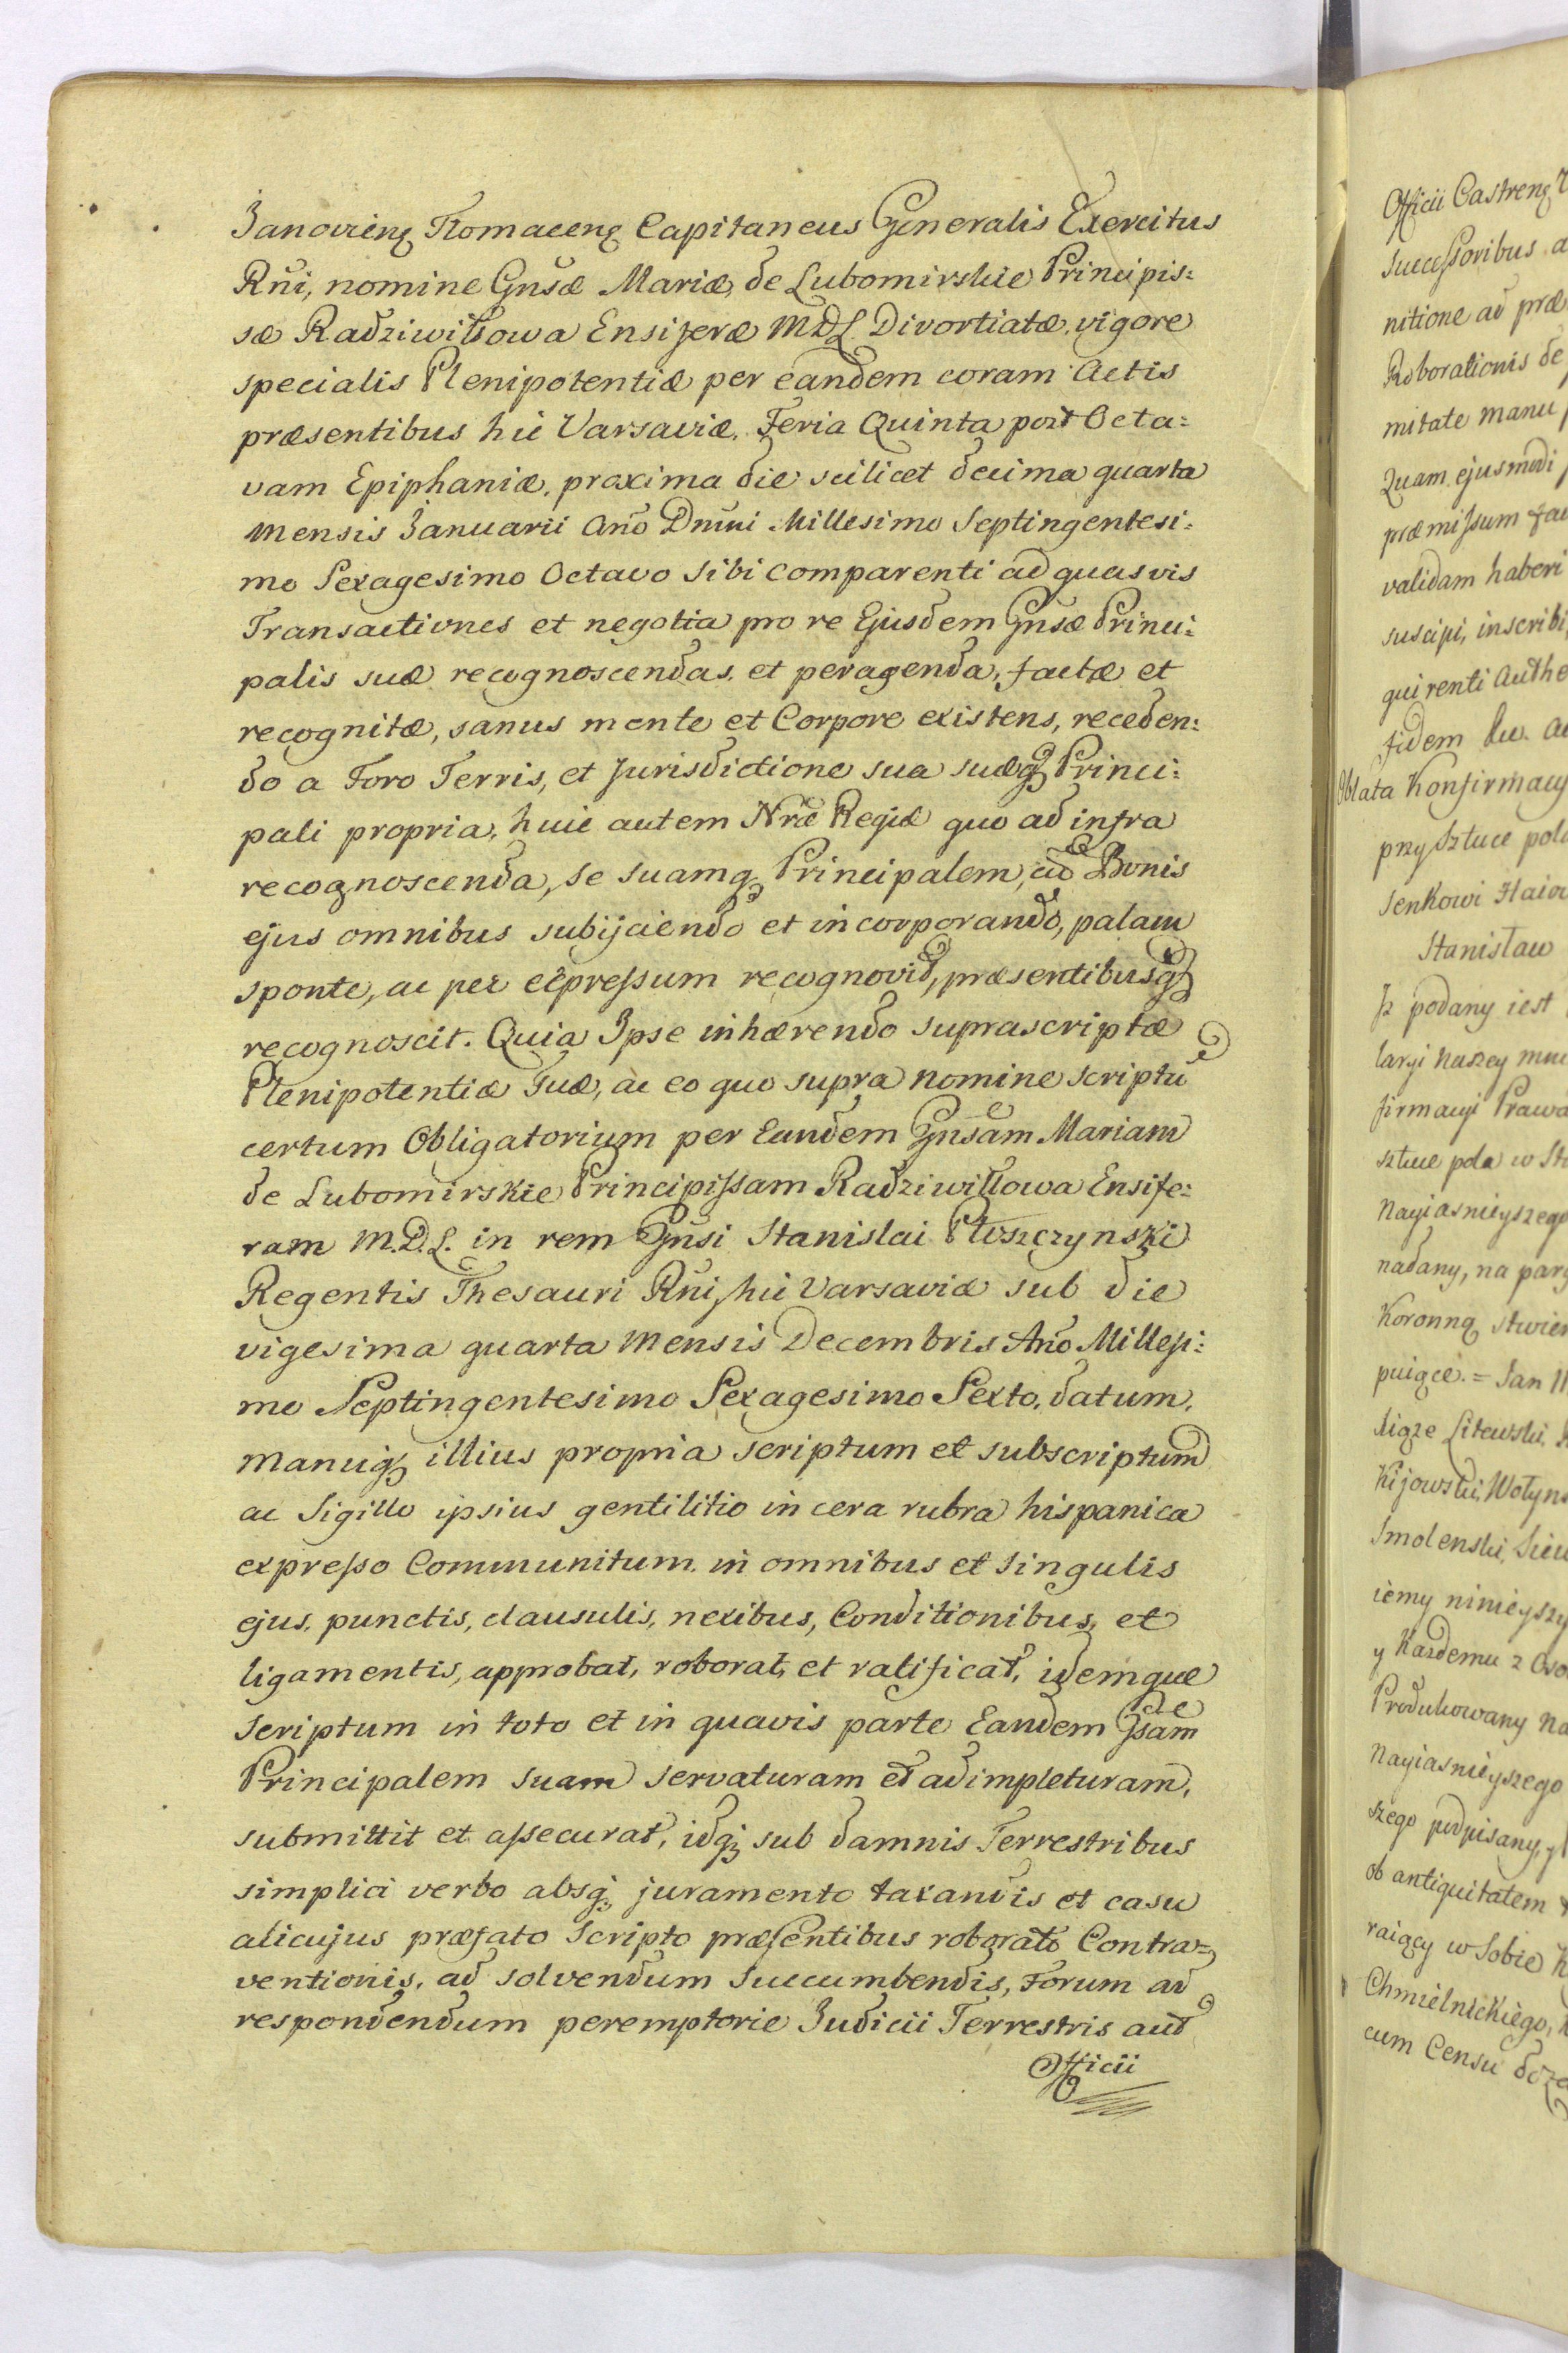 Janovieng Tlomaceng Capitaneus Generalis Exercitus
Rñi, nomine Gnsæ Mariæ de Lubomirskie Principis:
sæ Radziwiłłowa Ensiferæ MDL Divortiatæ, vigore
specialis Plenipotentiæ per eandem coram Actis
præsentibus hic Varsaviæ, Feria Quinta post Octa:
vam Epiphaniæ, proxima die scilicet decima quarta
mensis Januarii Año Dñni Millesimo Septingentesi:
mo Sexagesimo Octavo sibi comparenti ad quasvis
Transactiones et negotia pro re Ejusdem Gnsæ Princi:
palis suæ recognoscendas, et peragenda, factæ et
recognitæ, sanus mente et Corpore existens, receden:
do a Foro Terris, et Jurisdictione sua suæq Princi:
pali propria, huic autem Nræ Regiæ quo ad infra
recognoscenda, se suamq Principalem, cũ Bonis
ejus omnibus subijciendo et incorporando, palam
sponte, ac per expressum recognovit, præsentibusq
recognoscit. Quia Ipse inhærendo suprascriptæ
Plenipotentiæ suæ, ac eo quo supra nomine scriptũ
certum Obligatorium per Eandem Gnsam Mariam
de Lubomirskie Principissam Radziwiłłowa Ensife:
ram M.D.L. in rem Gñsi Stanislai Płoszczynski
Regentis Thesauri Rñi, hic Varsaviæ sub die
vigesima quarta mensis Decembris Año Millesi:
mo Septingentesimo Sexagesimo Sexto, datum,
manuiq illius propria scriptum et subscriptum
ac Sigillo ipsius gentilitio in cera rubra hispanica
expresso Communitum, in omnibus et singulis
ejus, punctis, clausulis, nexibus, Conditionibus, et
ligamentis, approbat, roborat, et ratificat, idemque
scriptum in toto et in quavis parte Eandem Gsam
Principalem suam servaturam et adimpleturam,
submittit et assecurat, idq sub damnis Terrestribus
simplici verbo absq juramento taxandis et casu
alicujus præfato Scripto præsentibus roborato Contra=
ventionis, ad solvendum succumbendis, Forum ad
respondendum peremptorie Judicii Terrestris aut
Officii
Officii Castreng
successoribus
nitione ad præ
Roborationis de
mitate manu
Quam ejusmodi
præmissum
validam haberi
suscipi, inscribi
quirenti Authe
fidem
Oblata Konfirmacy
przy Sztuce pola
Senkowi
Stanisław
Jz podany iest
laryi Naszey
firmacyi Prawa
sztuce pola w
Nayiasnieyszego
nadany, na
Koronną stwier
puiące. = Jan
xiąze Litewski,
Kijowski, Wołyns
Smolenski,
iemy ninieyszy
y Każdemu z
Produkowany
Nayiasnieyszego
szego podpisany, y
ob antiquitatem
raiący w Sobie
Chmielnickiego,
cum Censu